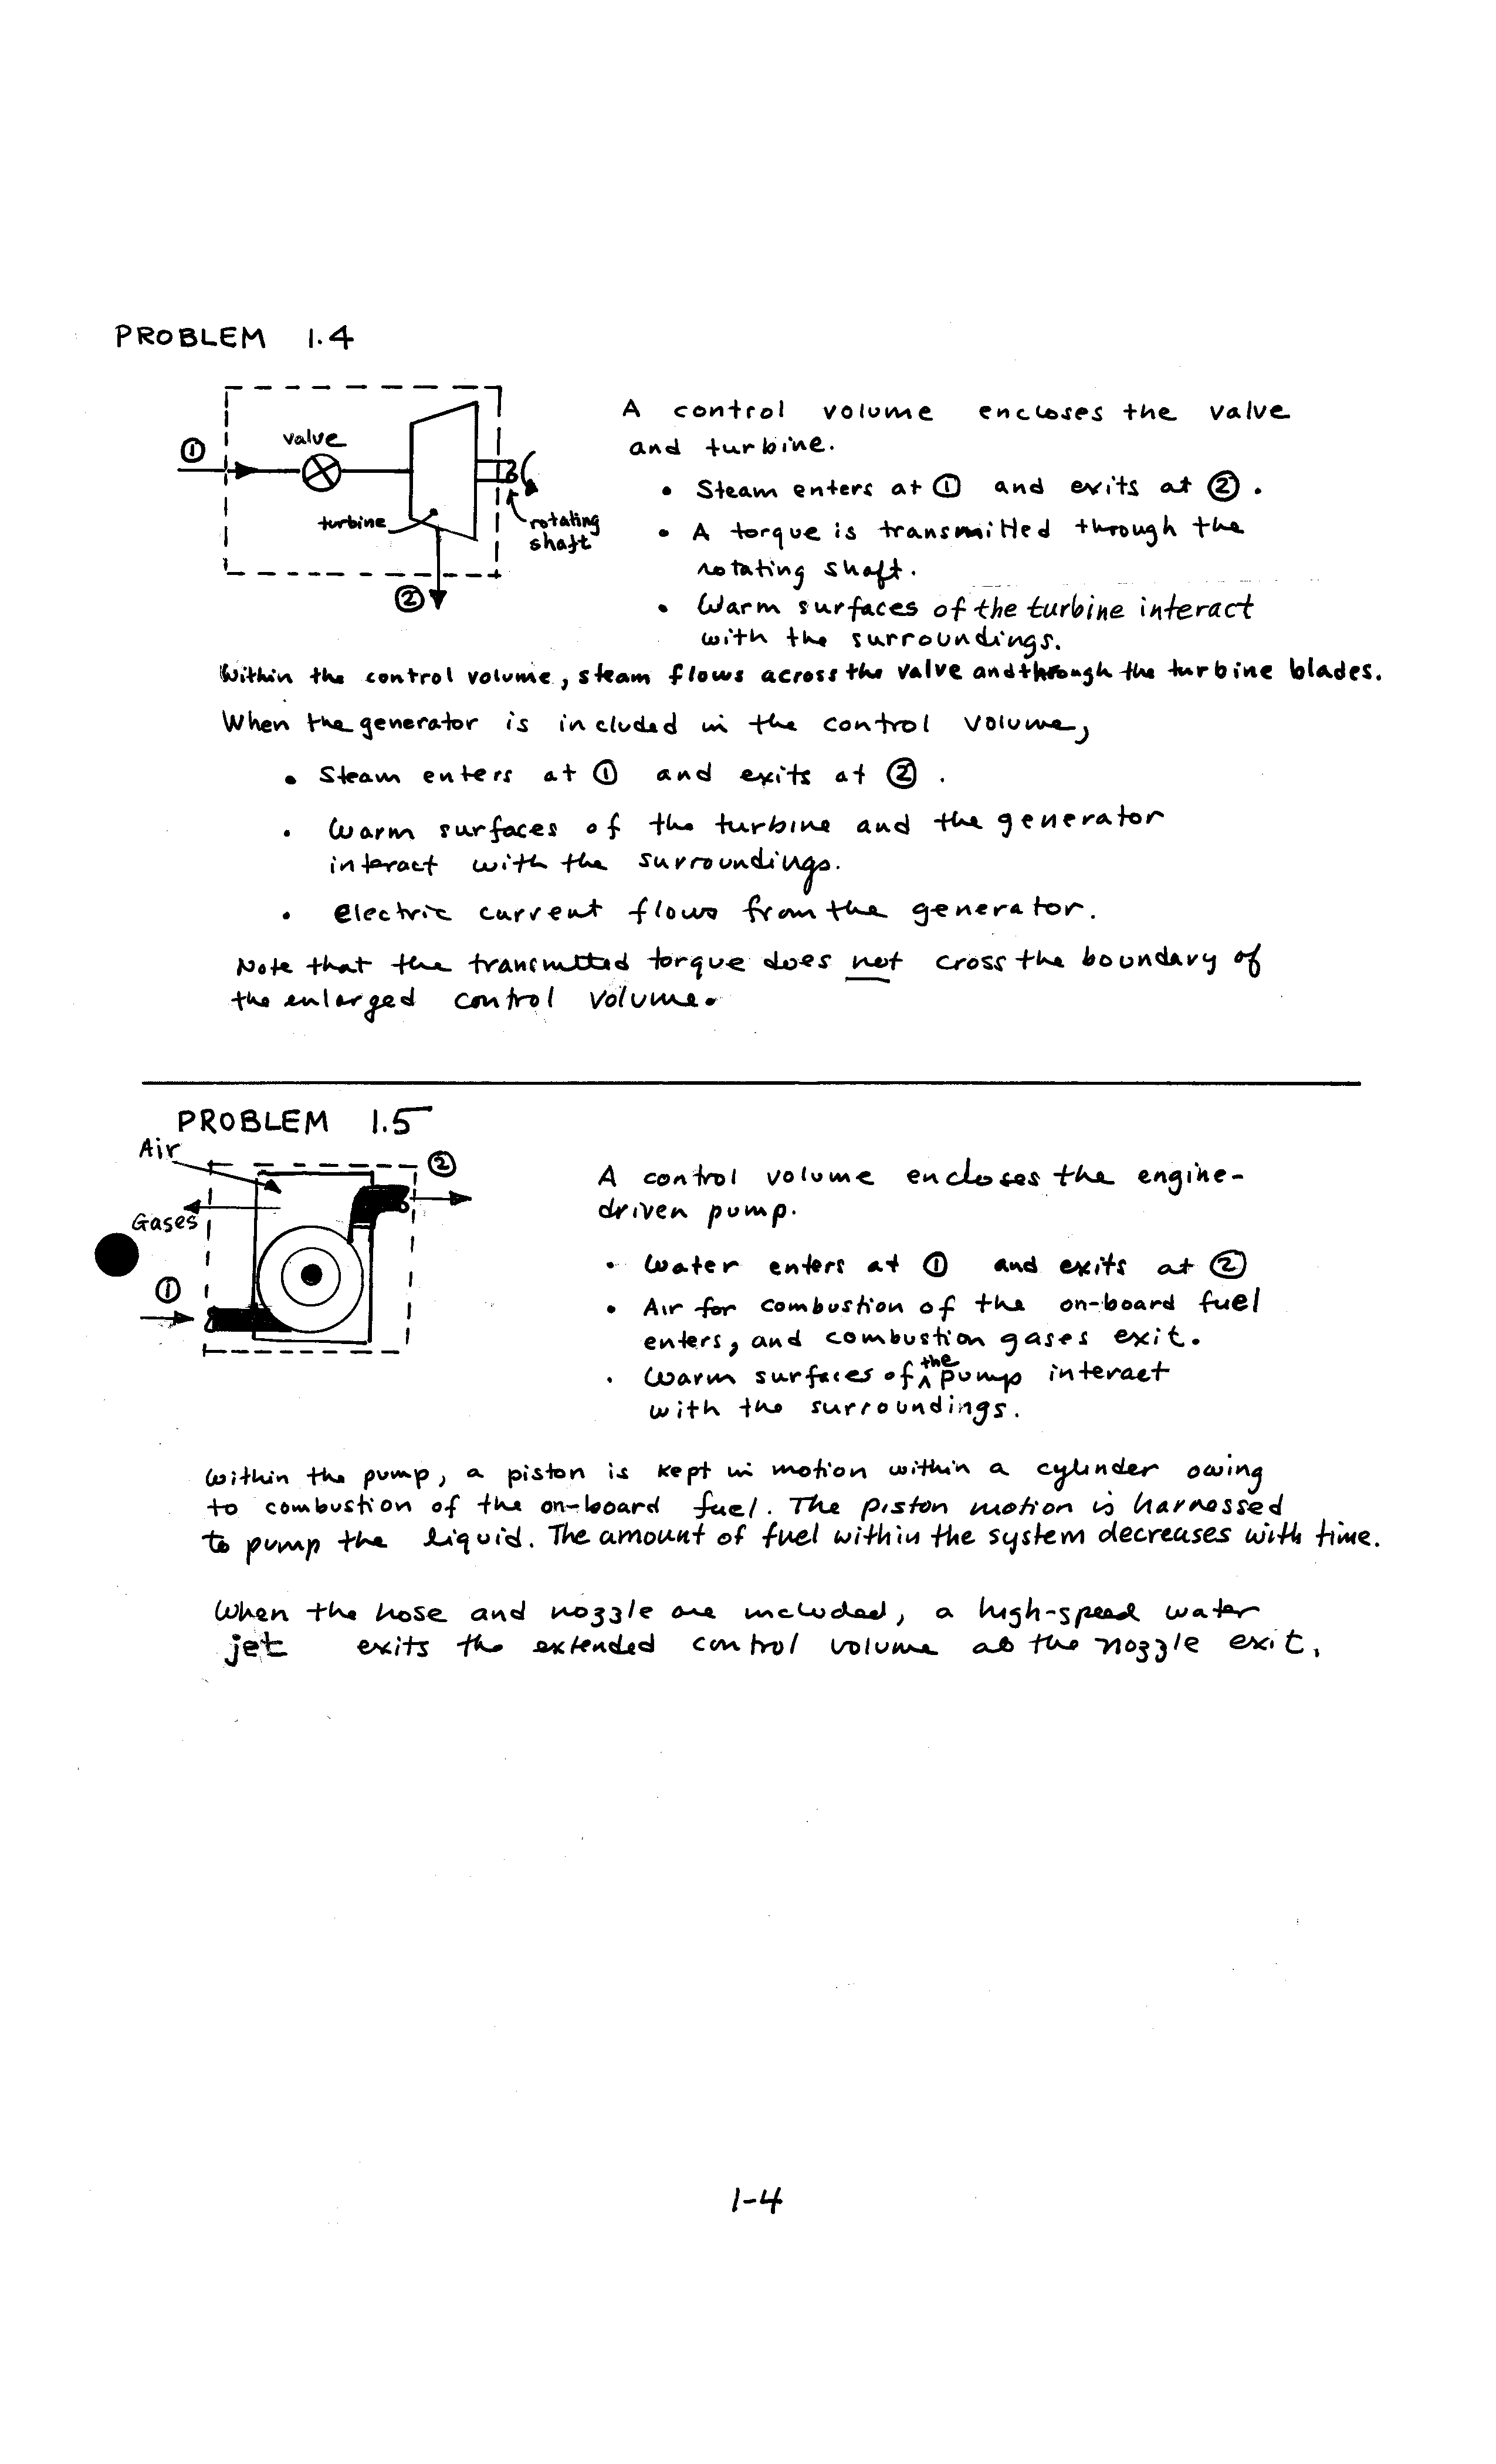 PROBLEM 1.4
①
valve
turbine
rotating
shaft
②
A control volume encloses the valve
and turbine.
• Steam enters at ① and exits at ②.
• A torque is transmitted through the
rotating shaft.
• Warm surfaces of the turbine interact
with the surroundings.
Within the control volume, steam flows across the valve and through the turbine blades.
When the generator is included in the control volume,
• Steam enters at ① and exits at ②.
• Warm surfaces of the turbine and the generator
interact with the surroundings.
• Electric current flows from the generator.
Note that the transmitted torque does not cross the boundary of
the enlarged control volume.
PROBLEM 1.5
Air
②
Gases
①
A control volume encloses the engine-
driven pump.
• Water enters at ① and exits at ②
• Air for combustion of the on-board fuel
enters, and combustion gases exit.
• Warm surfaces of the pump interact
with the surroundings.
Within the pump, a piston is kept in motion within a cylinder owing
to combustion of the on-board fuel. The piston motion is harnessed
to pump the liquid. The amount of fuel within the system decreases with time.
When the hose and nozzle are included, a high-speed water
jet exits the extended control volume at the nozzle exit.
1-4